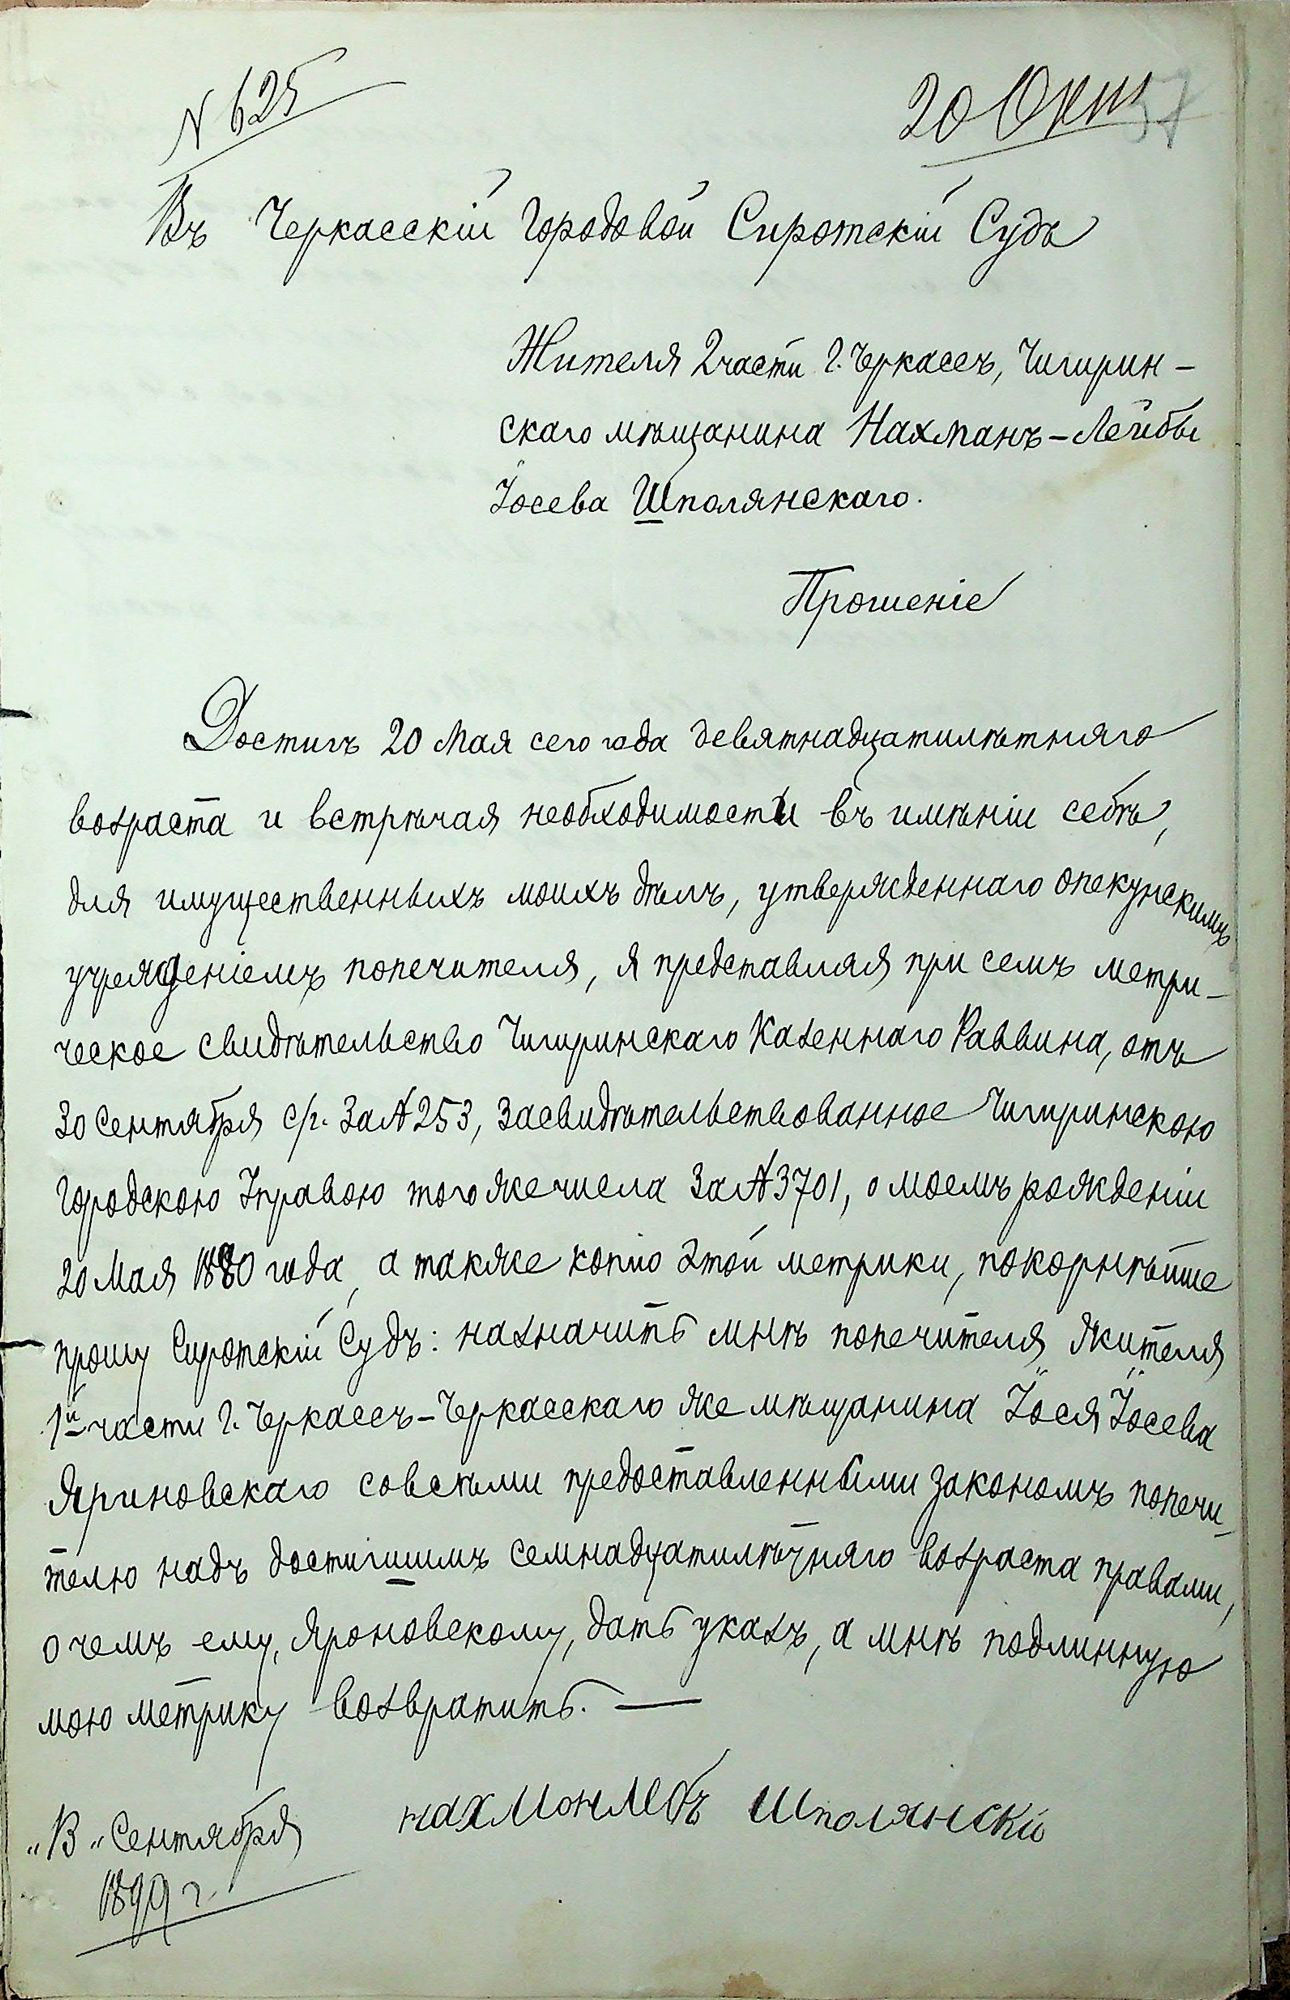 N 625
20 Окт
57
Въ Черкасскій Городовой Сиротскій Судъ
Жителя 2 части г. Черкассъ, Чигирин-
скаго мѣщанина Нахманъ-Лейбы
Іосева Шполянскаго.
Прошеніе
Достигъ 20 Мая сего года девятнадцатилѣтняго
возраста и встрѣчая необходимости въ имѣніи себѣ,
для имущественныхъ моихъ дѣлъ, утвержденнаго опекунскимъ
учрежденіемъ попечителя, я представляя при семъ метри-
ческое свидѣтельство Чигиринскаго Казеннаго Раввина, отъ
30 Сентября с/г. за № 253, засвидѣтельствованное Чигиринскою
Городскою Управою того же числа за № 3701, о моемъ рожденіи
20 Мая 1880 года, а также копію этой метрики, покорнѣйше
прошу Сиротскій Судъ: назначить мнѣ попечителя жителя
1й части г. Черкассъ-Черкасскаго же мѣщанина Іося Іосева
Яриновскаго со всѣми предоставленными закономъ попечи-
телю надъ достигшимъ семнадцатилѣтняго возраста правами,
о чемъ ему, Яроновскому, дать указъ, а мнѣ подлинную
мою метрику возвратить. —
нахмонлебъ Шполянскій
"В" Сентября
1899 г.